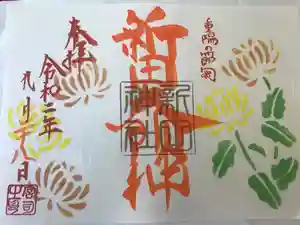 重陽の節句
新田神社
新田神社
奉拝
令和二年
九月二十八日
宮司
之印